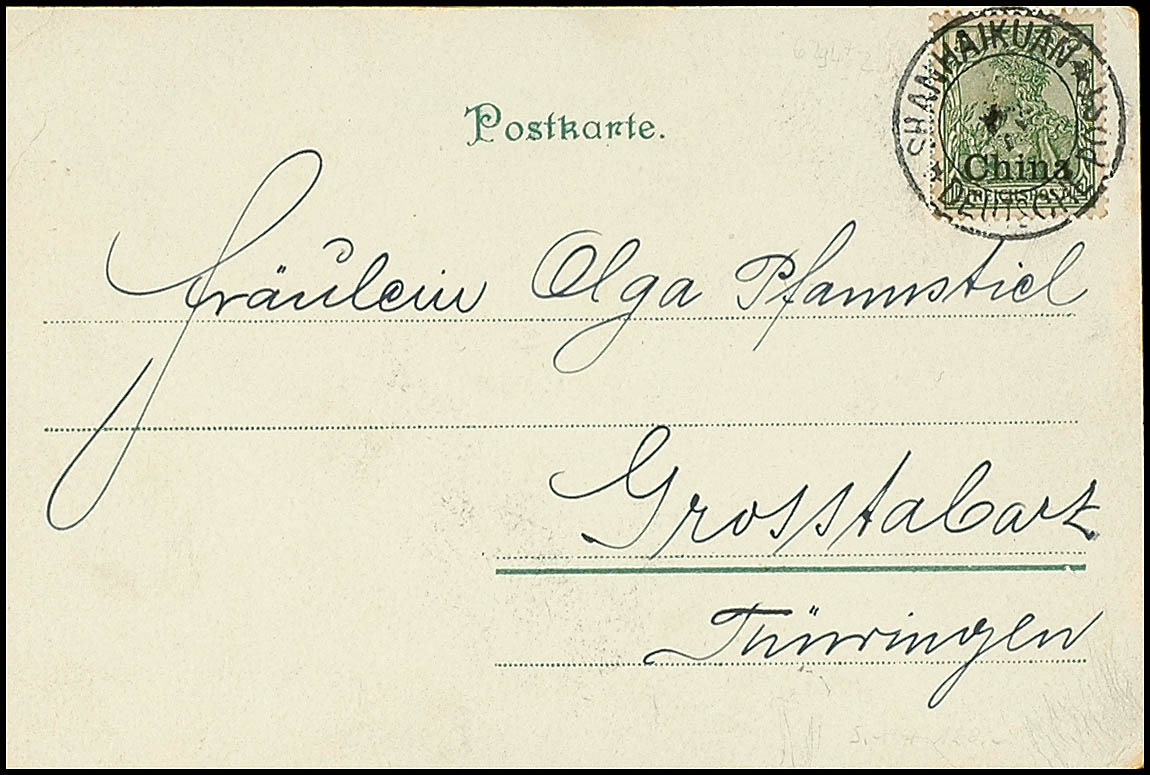 Postkarte.
SHANHAIKUAN
* DEUTSCHE POST *
China
REICHSPOST
Fräulein Olga Pfannstiel
Grosstabarz
Thüringen